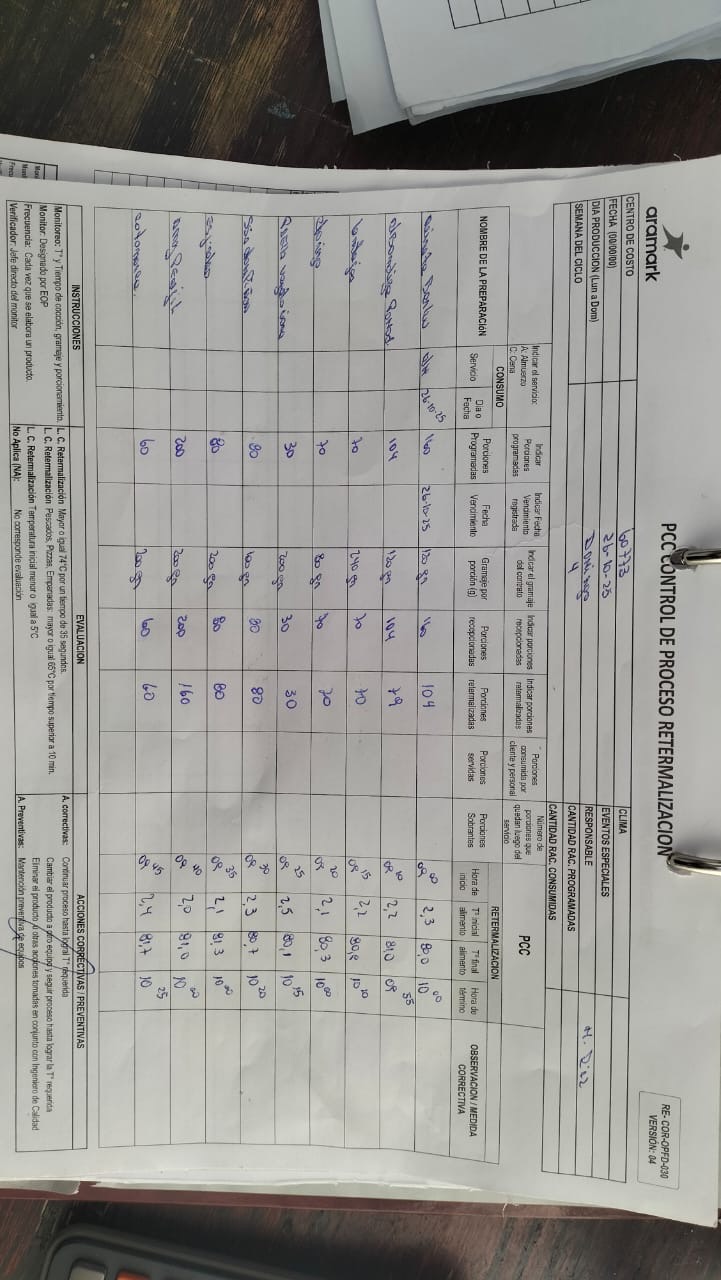 aramark
PCC CONTROL DE PROCESO RETERMALIZACION
RE- COR-OPFD-030
VERSIÓN: 04
CENTRO DE COSTO 60773 CLIMA
FECHA (00/00/00) 26-10-25 EVENTOS ESPECIALES
DIA PRODUCCION (Lun a Dom) Domingo RESPONSABLE H. Diaz
SEMANA DEL CICLO 4 CANTIDAD RAC. PROGRAMADAS
CANTIDAD RAC. CONSUMIDAS
Indicar el servicio:
A: Almuerzo
C: Cena
Indicar Porciones programadas
Indicar Fecha Vencimiento registrada
Indicar el gramaje del contrato
Indicar porciones recepcionadas
Indicar porciones retermalizadas
Porciones consumida por cliente y personal
Número de porciones que quedan luego del servicio
PCC
NOMBRE DE LA PREPARACIÓN
CONSUMO
Servicio
Dia o Fecha
Porciones Programadas
Fecha Vencimiento
Gramaje por porción (g)
Porciones recepcionadas
Porciones retermalizadas
Porciones servidas
Porciones Sobrantes
RETERMALIZACION
Hora de inicio
Tº inicial alimento
Tº final alimento
Hora de término
OBSERVACION / MEDIDA CORRECTIVA
26-10-25 160 26-10-25 120 gr 160 104 09 00 2,3 80,0 10 00
104 120 gr 104 79 09 10 2,2 81,0 09 55
70 240 gr 70 70 09 15 2,2 10 10
70 80 gr 70 70 09 20 2,1 80,3 10 00
30 200 gr 30 30 09 25 2,5 80,1 10 15
80 80 80 09 30 2,3 80,7 10 20
80 200 gr 80 80 09 35 2,1 81,3 10 00
arroz Perejil 200 200 gr 200 160 09 40 2,0 81,0 10 00
60 200 gr 60 60 09 45 2,4 81,7 10 25
INSTRUCCIONES
Monitoreo: Tº y Tiempo de cocción, gramaje y porcionamiento
Monitor: Designado por EOP
Frecuencia: Cada vez que se elabora un producto.
Verificador: Jefe directo del monitor
EVALUACION
L. C. Retermalización Mayor o igual 74°C por un tiempo de 35 segundos.
L. C. Retermalización Pescados, Pizzas, Empanadas: mayor o igual 65°C por tiempo superior a 10 min.
L. C. Retermalización Temperatura inicial menor o igual a 5°C
No Aplica (NA): No corresponde evaluación
ACCIONES CORRECTIVAS / PREVENTIVAS
A. correctivas: Continuar proceso hasta lograr Tº requerida
Cambiar el producto a otro equipo y seguir proceso hasta lograr la Tº requerida
Eliminar el producto u otras acciones tomadas en conjunto con Ingeniero de Calidad
A. Preventivas: Mantención preventiva de equipos